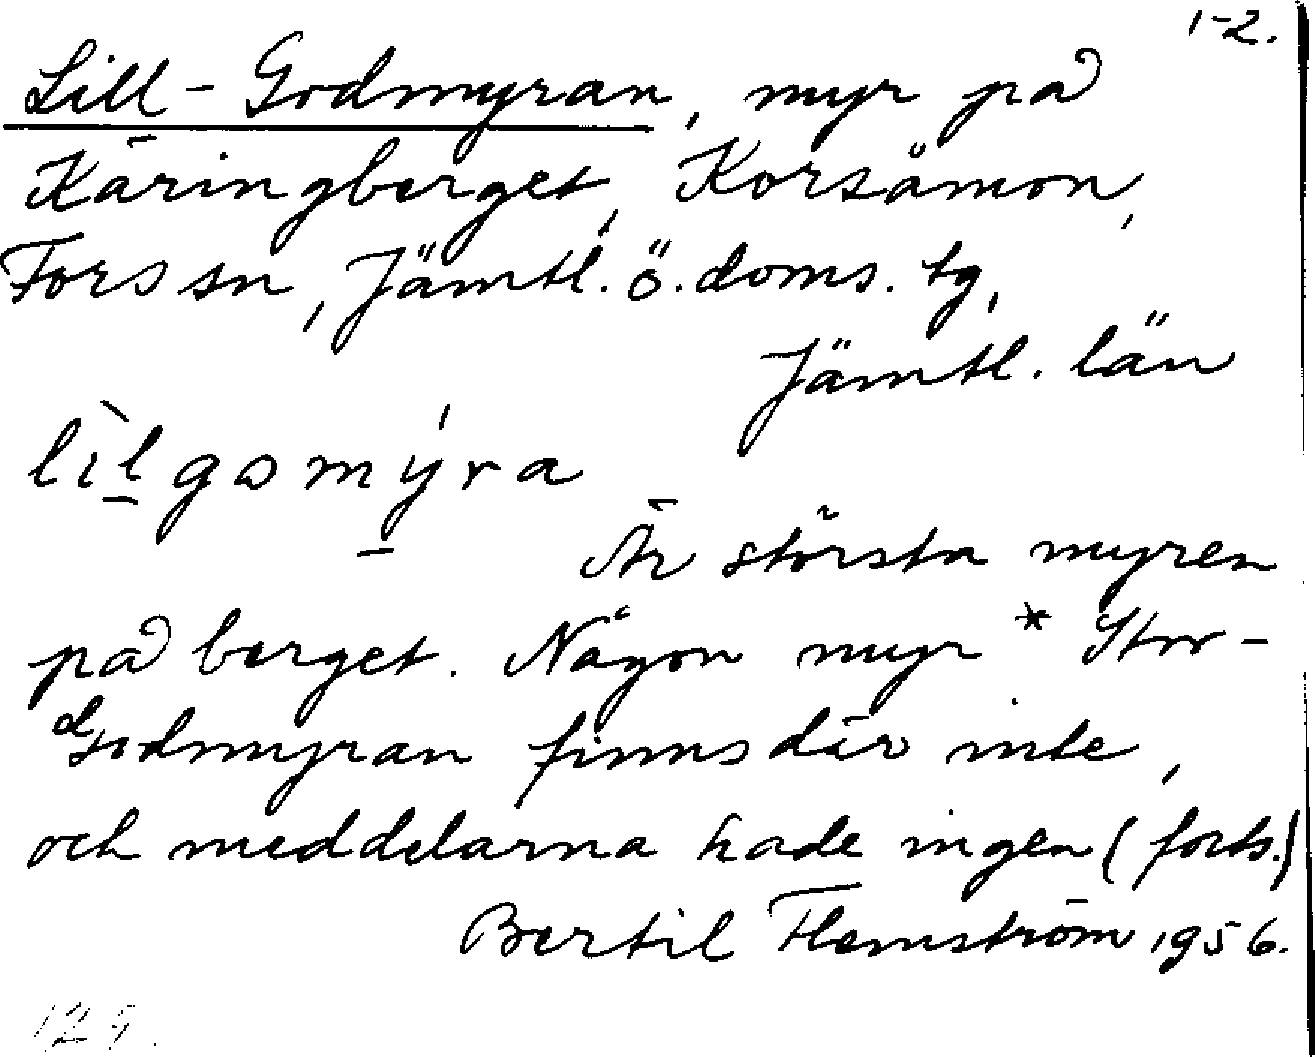 1-2.
Lill-Godmyran, myr på
Käringberget, Korsåmon,
Fors sn, Jämtl. ö. doms. tg,
Jämtl. län
lìlgomýra
Är största myren
på berget. Någon myr * Stor-
Godmyran finns där inte,
och meddelarna hade ingen (forts.)
Bertil Flemström 1956.